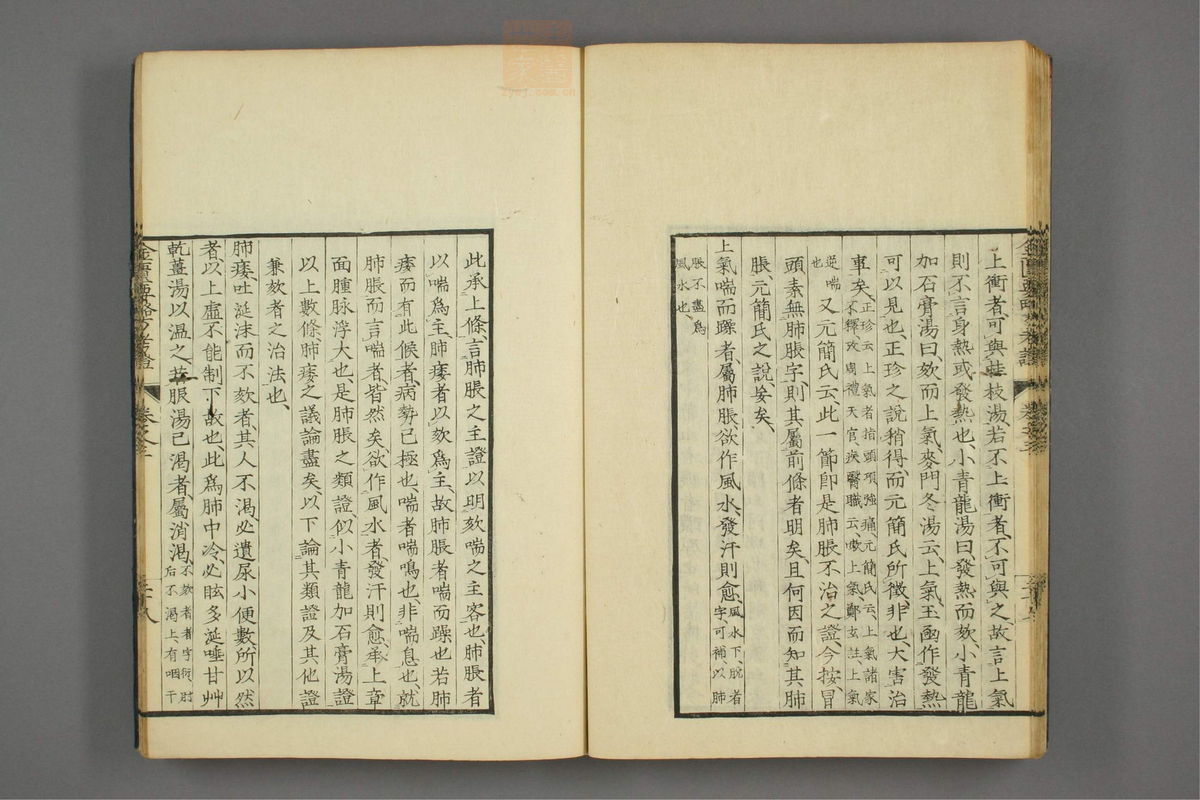 上衝者可與桂枝湯若不上衝者不可與之故言上氣
則不言身熱或發熱也小青龍湯曰發熱而欬小青龍
加石膏湯曰欬而上氣麥門冬湯云上氣玉函作發熱
可以見也正珍之說稍得而元簡氏所徵非也大害治
事矣正珍云上氣者指頭項強痛元簡氏云上氣諸家
不釋攷周禮天官疾醫職云嗽上氣鄭玄註上氣
逆喘也又元簡氏云此一節即是肺脹不治之證今按冒
頭素無肺脹字則其屬前條者明矣且何因而知其肺
脹元簡氏之說妄矣
上氣喘而躁者屬肺脹欲作風水發汗則愈風水下脫者字可補以肺
脹不盡爲風水也
此承上條言肺脹之主證以明欬喘之主客也肺脹者
以喘爲主肺痿者以欬爲主故肺脹者喘而躁也若肺
痿而有此候者病勢已極也喘者喘鳴也非喘息也就
肺脹而言喘者皆然矣欲作風水者發汗則愈承上章
面腫脉浮大也是肺脹之類證似小青龍加石膏湯證
以上數條肺痿之議論盡矣以下論其類證及其他證
兼欬者之治法也
肺痿吐涎沫而不欬者其人不渴必遺尿小便數所以然
者以上虛不能制下故也此爲肺中冷必眩多涎唾甘艸
乾薑湯以溫之若服湯已渴者屬消渴不欬者者字衍尉后不渴上有咽干
金匱要略方考證
卷之三